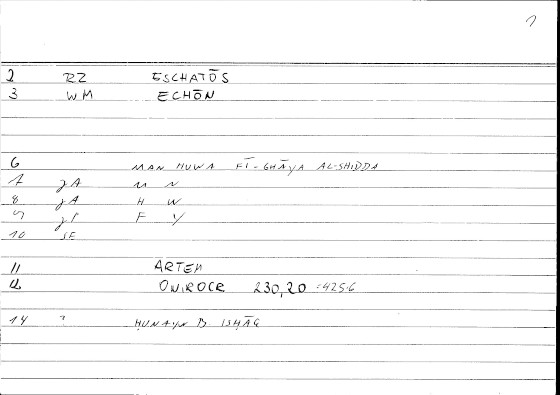 1
2 RZ ESCHATŌS
3 WM ECHŌN
6 MAN HUWA FĪ-GHĀYA AL-SHIDDA
7 JA M N
8 JA H W
9 F Y
10 SE
11 ARTEM
12 ONIROCR 230,20 =425.6
14 ? ḤUNAYN B ISḤĀQ